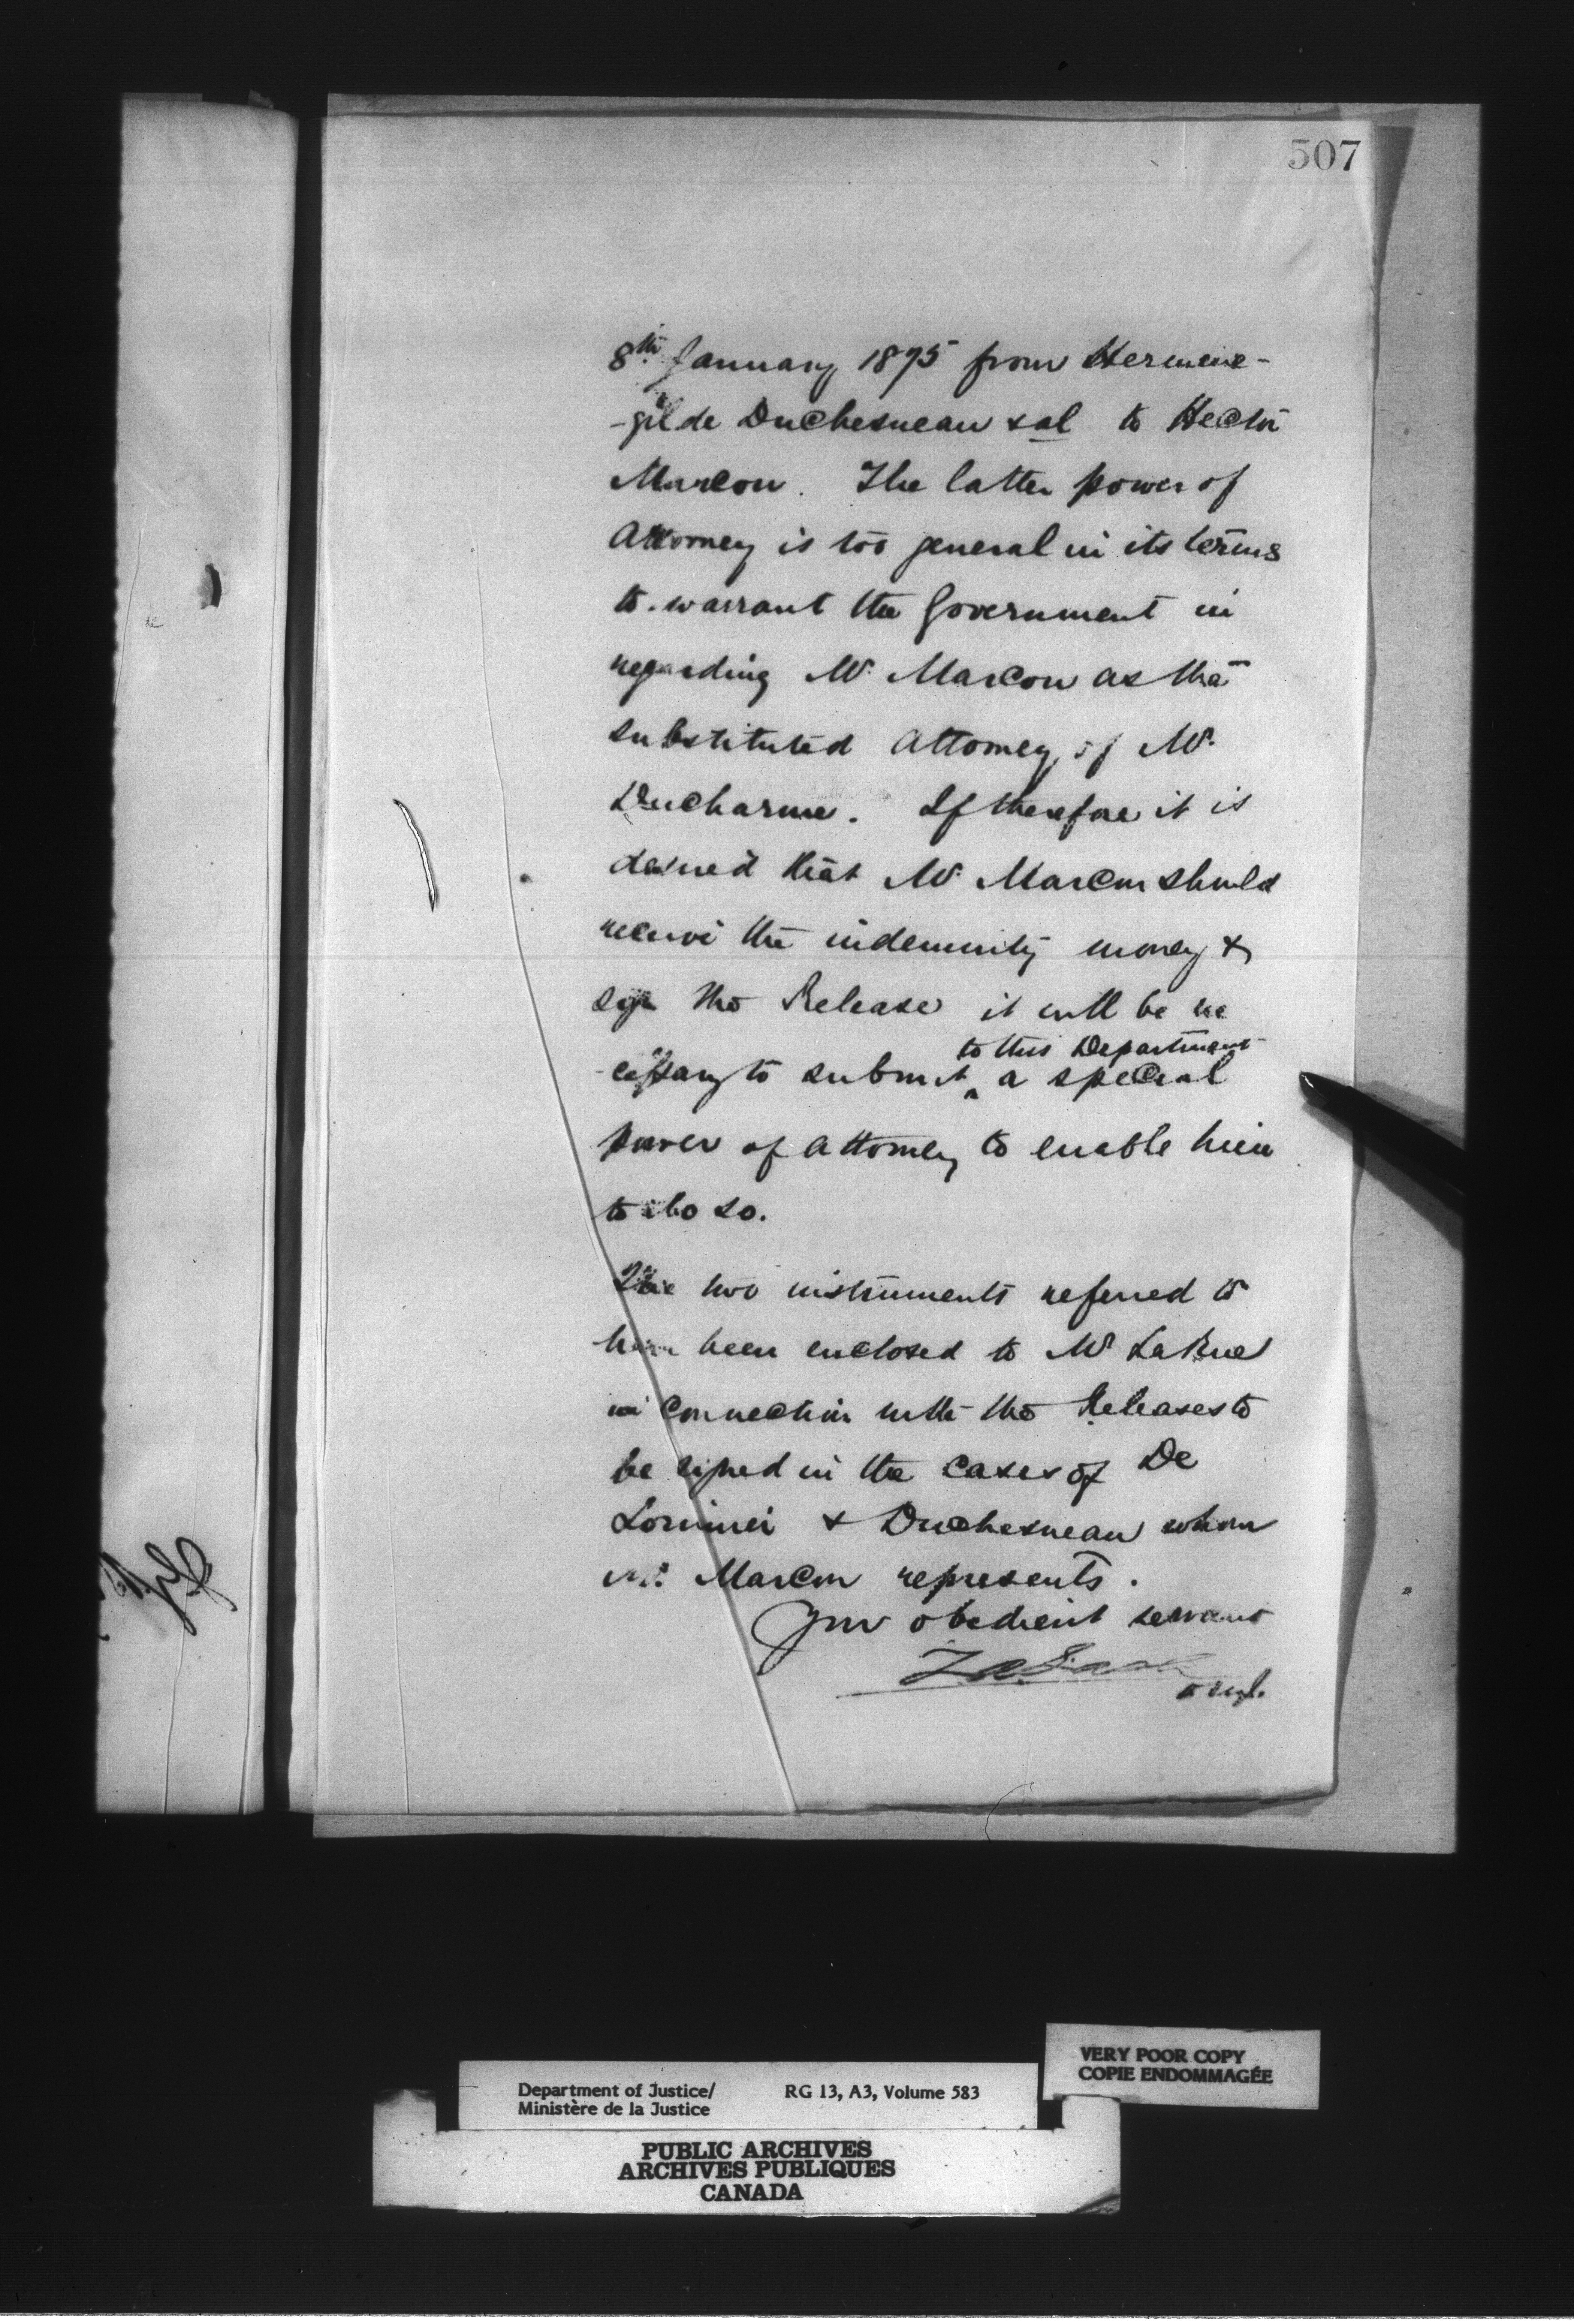 507
8th January 1875 from Hermene-
-gilde Duchesneau & al to Hector
Marcou. The latter power of
Attorney is too general in its terms
to warrant the Government in
regarding Mr. Marcou as the
substituted Attorney of Mr.
Ducharme. If therefore it is
desired that Mr. Marcou should
receive the indemnity money &
sign the Release it will be ne
to this Department
-cessary to submit ^ a special
power of Attorney to enable him
to do so.
The two instruments referred to
have been enclosed to Mr LaRue
in connection with the Releases to
be signed in the cases of De
Lorimier & Duchesneau whom
Mr. Marcou represents.
Your obedient servant
Department of Justice/
Ministère de la Justice
RG 13, A3, Volume 583
VERY POOR COPY
COPIE ENDOMMAGÉE
PUBLIC ARCHIVES
ARCHIVES PUBLIQUES
CANADA